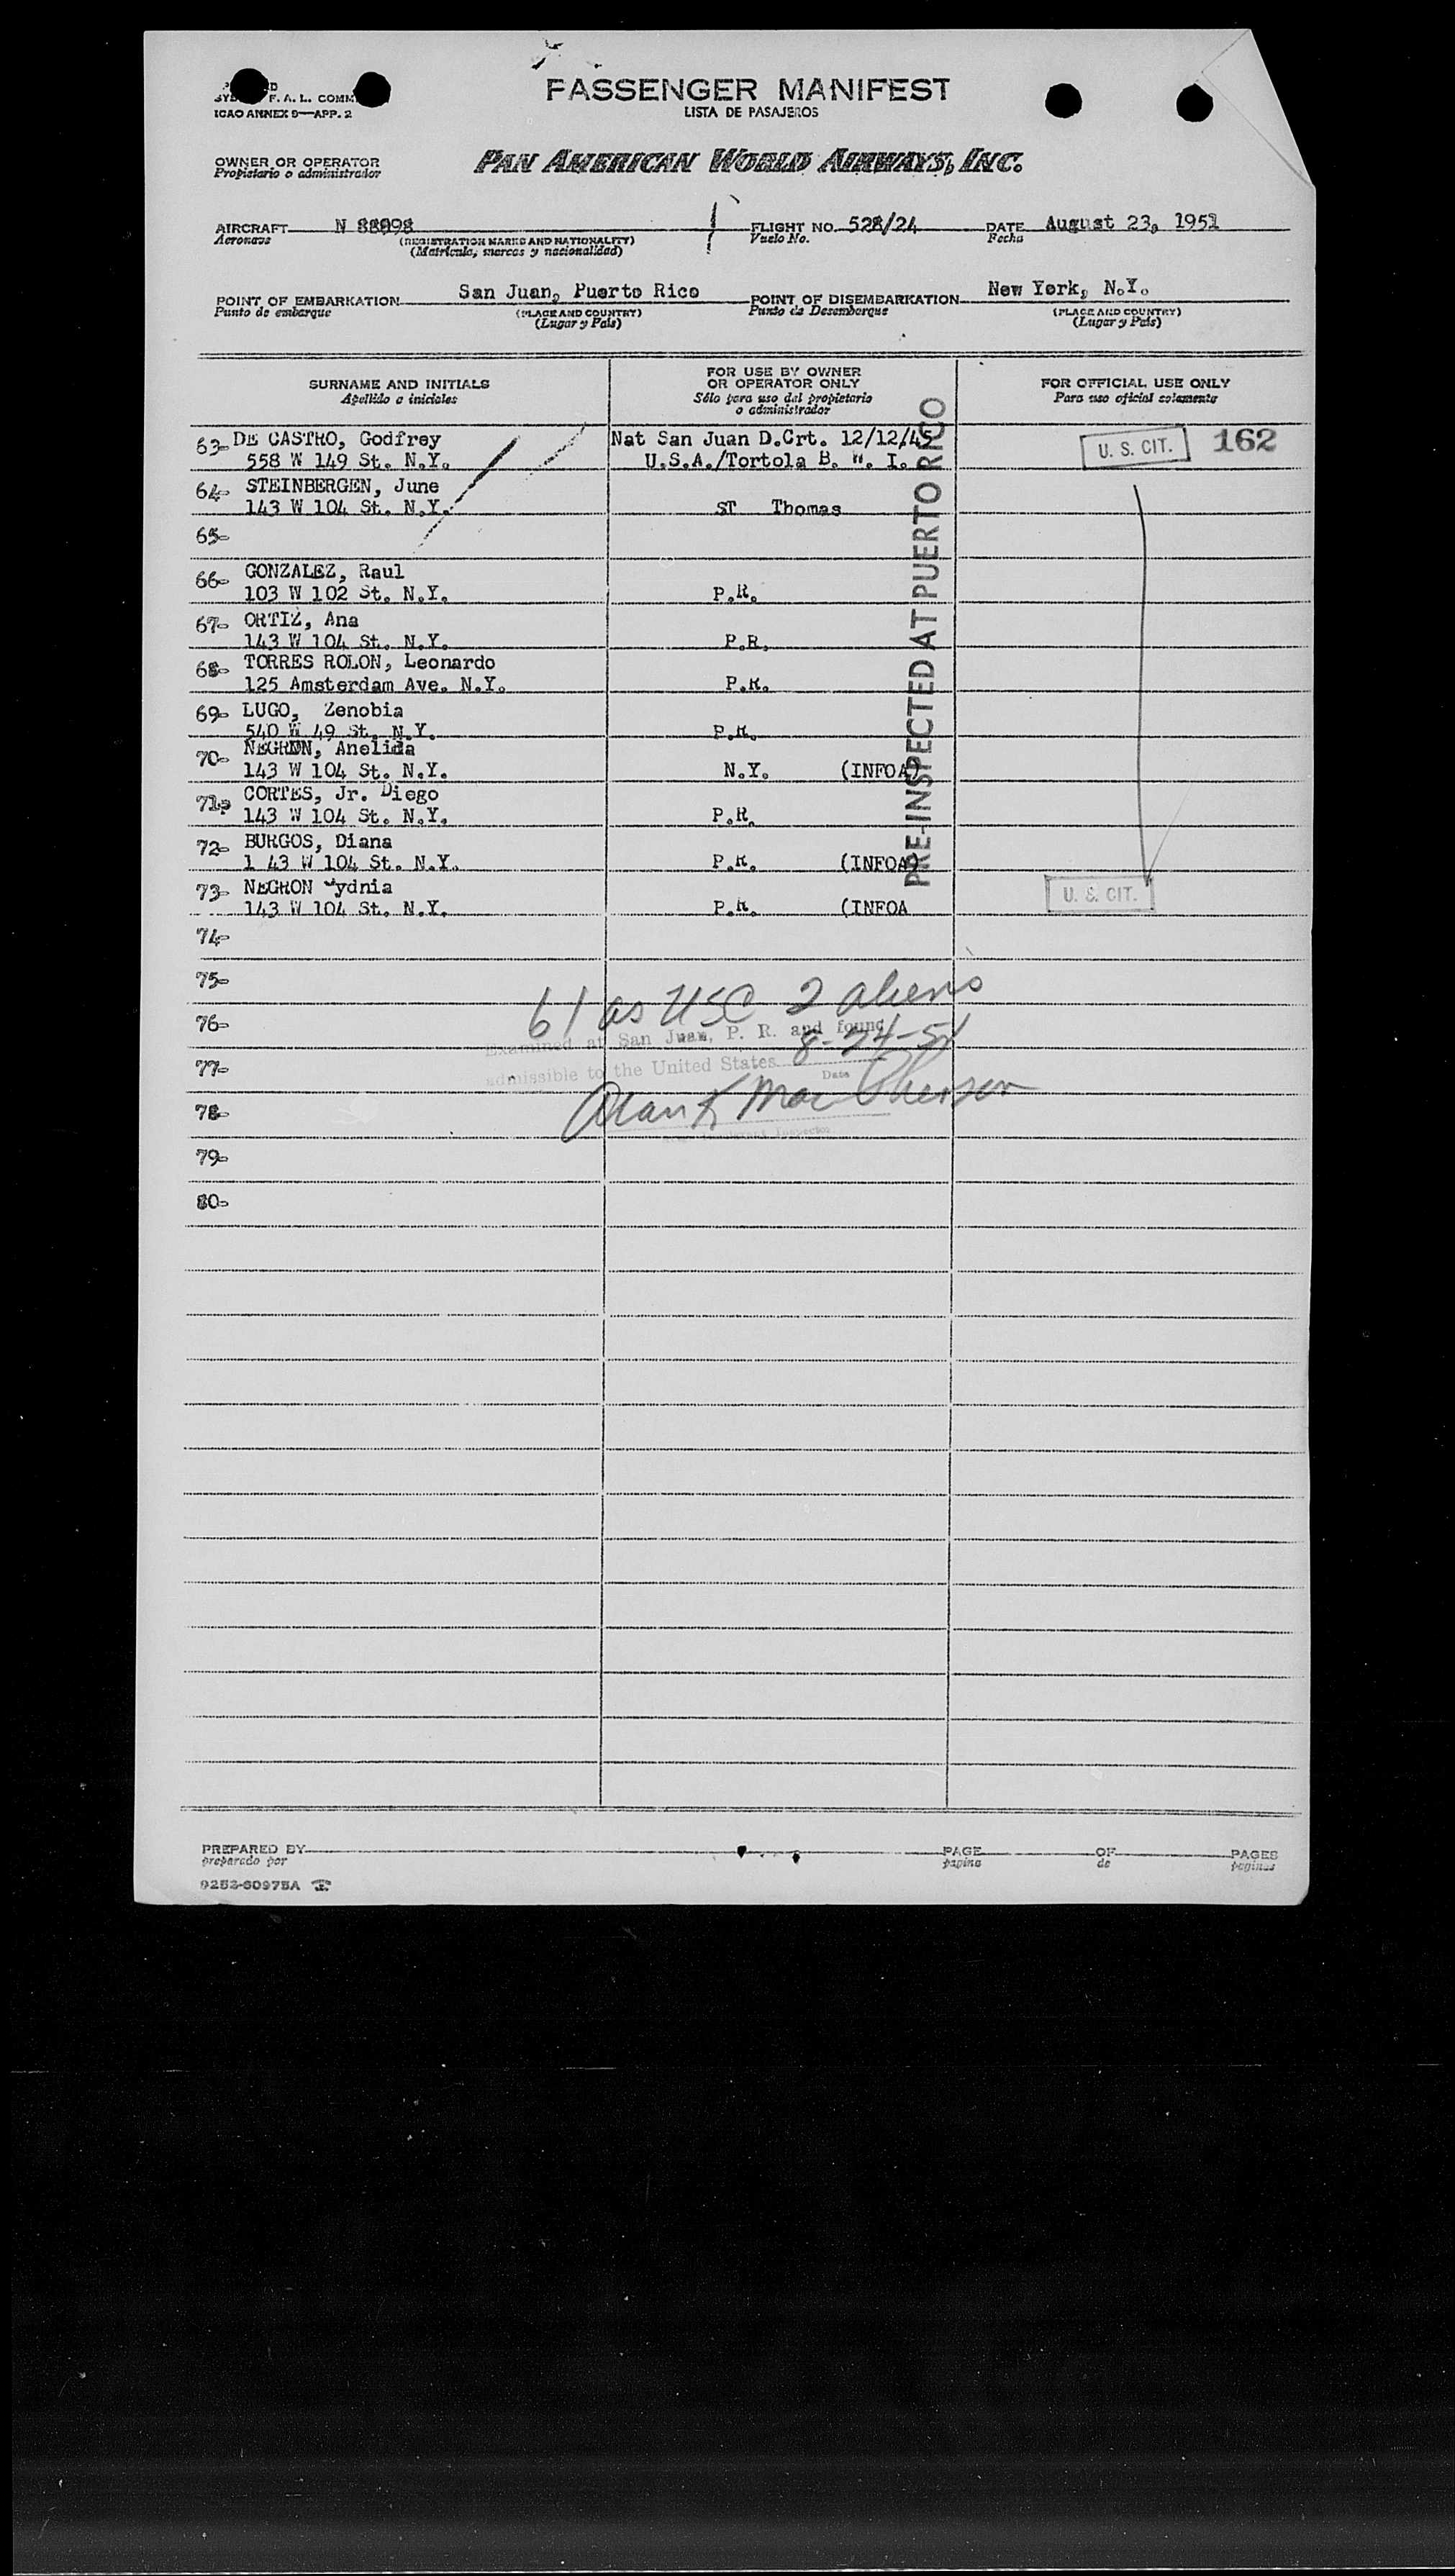 F. A. L. COMM.
ICAO ANNEX 9—APP. 2
PASSENGER MANIFEST
LISTA DE PASAJEROS
OWNER OR OPERATOR
Propietario o administrador
PAN AMERICAN WORLD AIRWAYS, INC.
AIRCRAFT N 88898 FLIGHT NO. 528/24 DATE August 23, 1951
Aeronave (REGISTRATION MARKS AND NATIONALITY) Vuelo No. Fecha
(Matrícula, marcas y nacionalidad)
POINT OF EMBARKATION San Juan, Puerto Rico POINT OF DISEMBARKATION New York, N.Y.
Punto de embarque (PLACE AND COUNTRY) Punto de Desembarque (PLACE AND COUNTRY)
(Lugar y País) (Lugar y País)
SURNAME AND INITIALS
Apellido e iniciales
FOR USE BY OWNER
OR OPERATOR ONLY
Sólo para uso del propietario
o administrador
FOR OFFICIAL USE ONLY
Para uso oficial solamente
63- DE CASTRO, Godfrey Nat San Juan D.Crt. 12/12/45 U. S. CIT. 162
558 W 149 St. N.Y. U.S.A./Tortola B. W. I.
64- STEINBERGEN, June
143 W 104 St. N.Y. ST Thomas
65-
66- GONZALEZ, Raul
103 W 102 St. N.Y. P.R.
67- ORTIZ, Ana
143 W 104 St. N.Y. P.R.
68- TORRES ROLON, Leonardo
125 Amsterdam Ave. N.Y. P.R.
69- LUGO, Zenobia
540 W 49 St. N.Y. P.R.
70- NEGRON, Anelida
143 W 104 St. N.Y. N.Y. (INFOA)
71- CORTES, Jr. Diego
143 W 104 St. N.Y. P.R.
72- BURGOS, Diana
1 43 W 104 St. N.Y. P.R. (INFOA)
73- NEGRON Sydnia U. S. CIT.
143 W 104 St. N.Y. P.R. (INFOA
PRE-INSPECTED AT PUERTO RICO
74-
75-
61 as USC 2 aliens
76-
Examined at San Juan, P. R. and found
77-
admissible to the United States 8-24-51
Date
78- Alan K MacPherson
Immigrant Inspector
79-
80-
PREPARED BY PAGE OF PAGES
preparado por página de páginas
9252-60975A